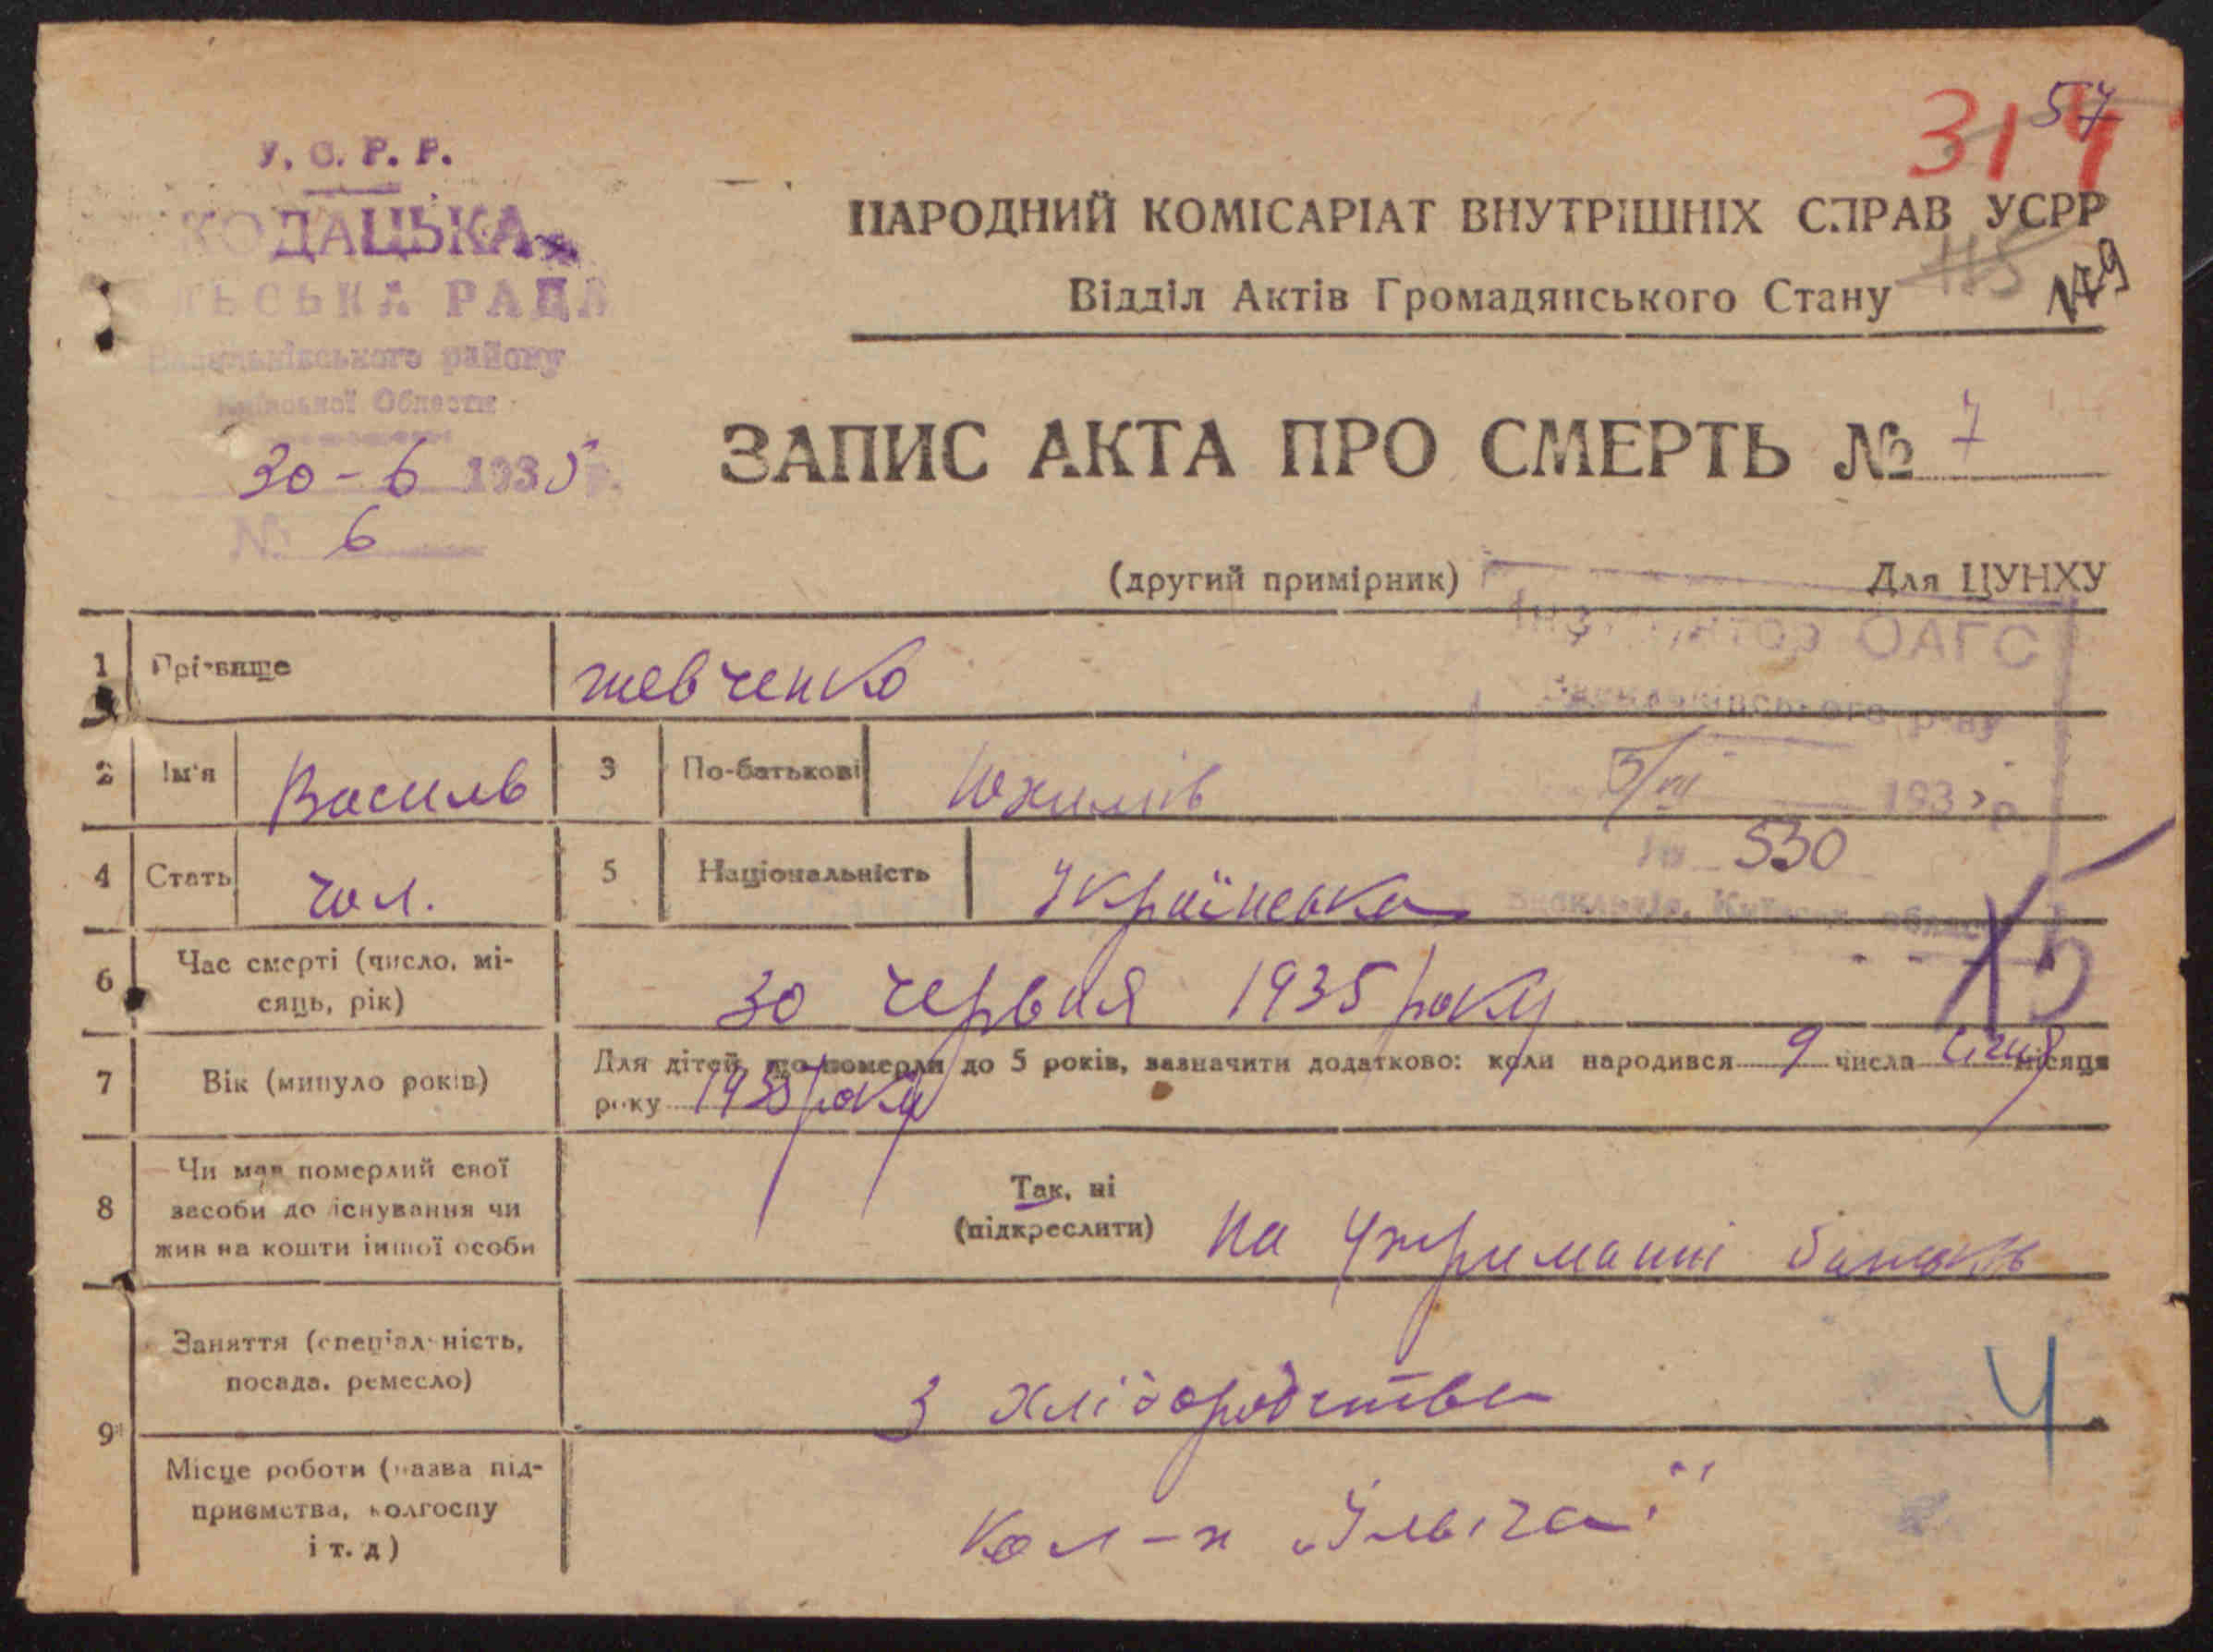 У. С. Р. Р.
КОДАЦЬКА
РАДА
району
Області
30-6 1935 р.
№ 6
314
57
НАРОДНИЙ КОМІСАРІАТ ВНУТРІШНІХ СПРАВ УСРР
Відділ Актів Громадянського Стану
115
179
ЗАПИС АКТА ПРО СМЕРТЬ № 7
(другий примірник)
Для ЦУНХУ
ОАГС
р-ну
5/VII 193 р
№ 530
1 Прізвище шевченко
2 Ім'я Василь 3 По-батькові Юхимів
4 Стать чол. 5 Національність Українська
6 Час смерті (число, мі-
сяць, рік) 30 червня 1935 року
7 Вік (минуло років) Для дітей, що померли до 5 років, зазначити додатково: коли народився 9 числа січня місяця
року 1935 року
8 Чи мав померлий свої
засоби до існування чи
жив на кошти іншої особи
Так, ні
(підкреслити) на утриманні батьків
9 Заняття (спеціальність,
посада, ремесло) з хліборобства
Місце роботи (назва під-
приємства, колгоспу
і т. д) Кол-п „Ілыча"